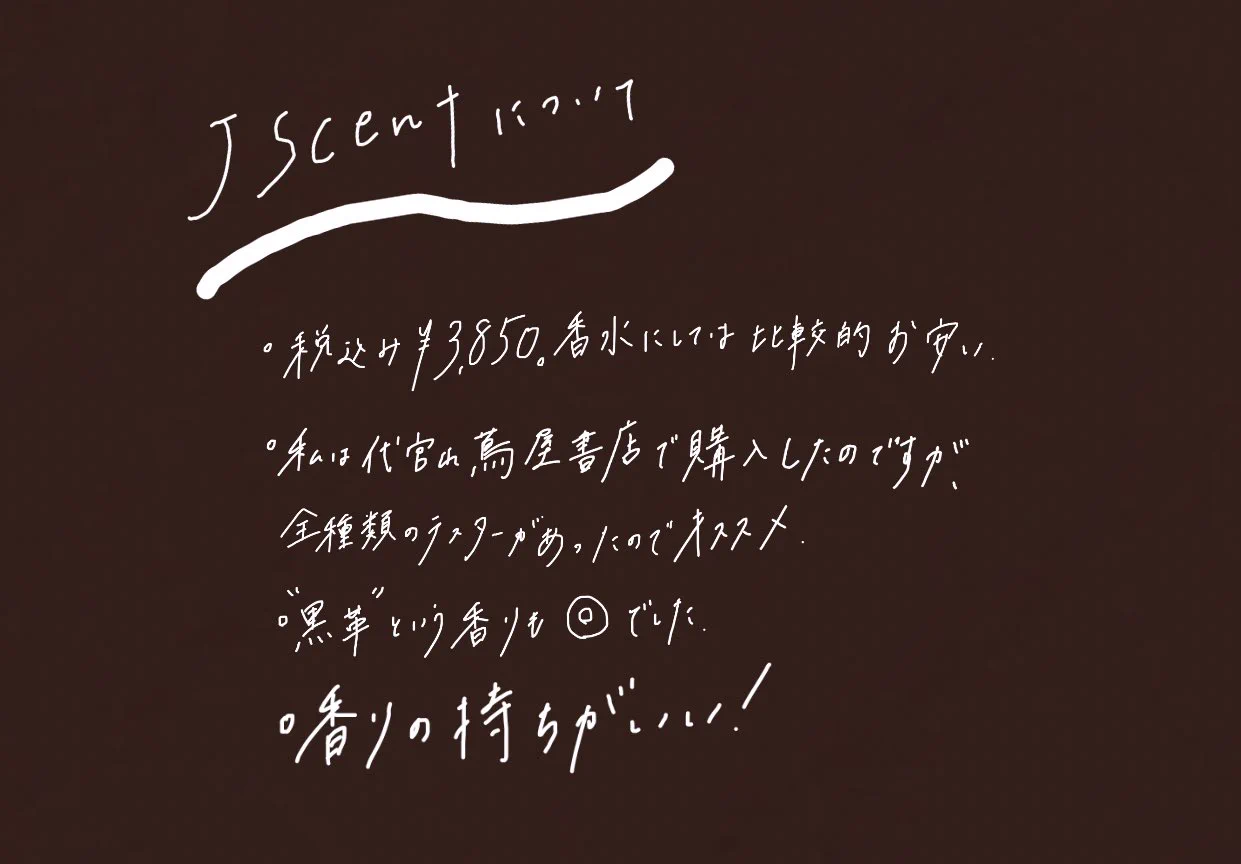 J Scentについて
◦税込み¥3,850。香水にしては比較的お安い.
◦私は代官山蔦屋書店で購入したのですが、
全種類のテスターがあったのでオススメ.
◦"黒革"という香りも◎でした.
◦香りの持ちがいい!